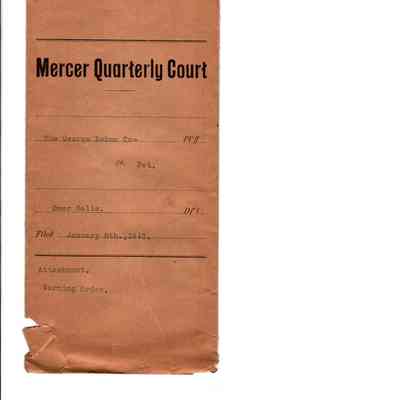 Mercer Quarterly Court
The George Co. Plff
vs. Pet.
Omer Dft.
Filed January 8th.,
Attachment.
Warning Order.